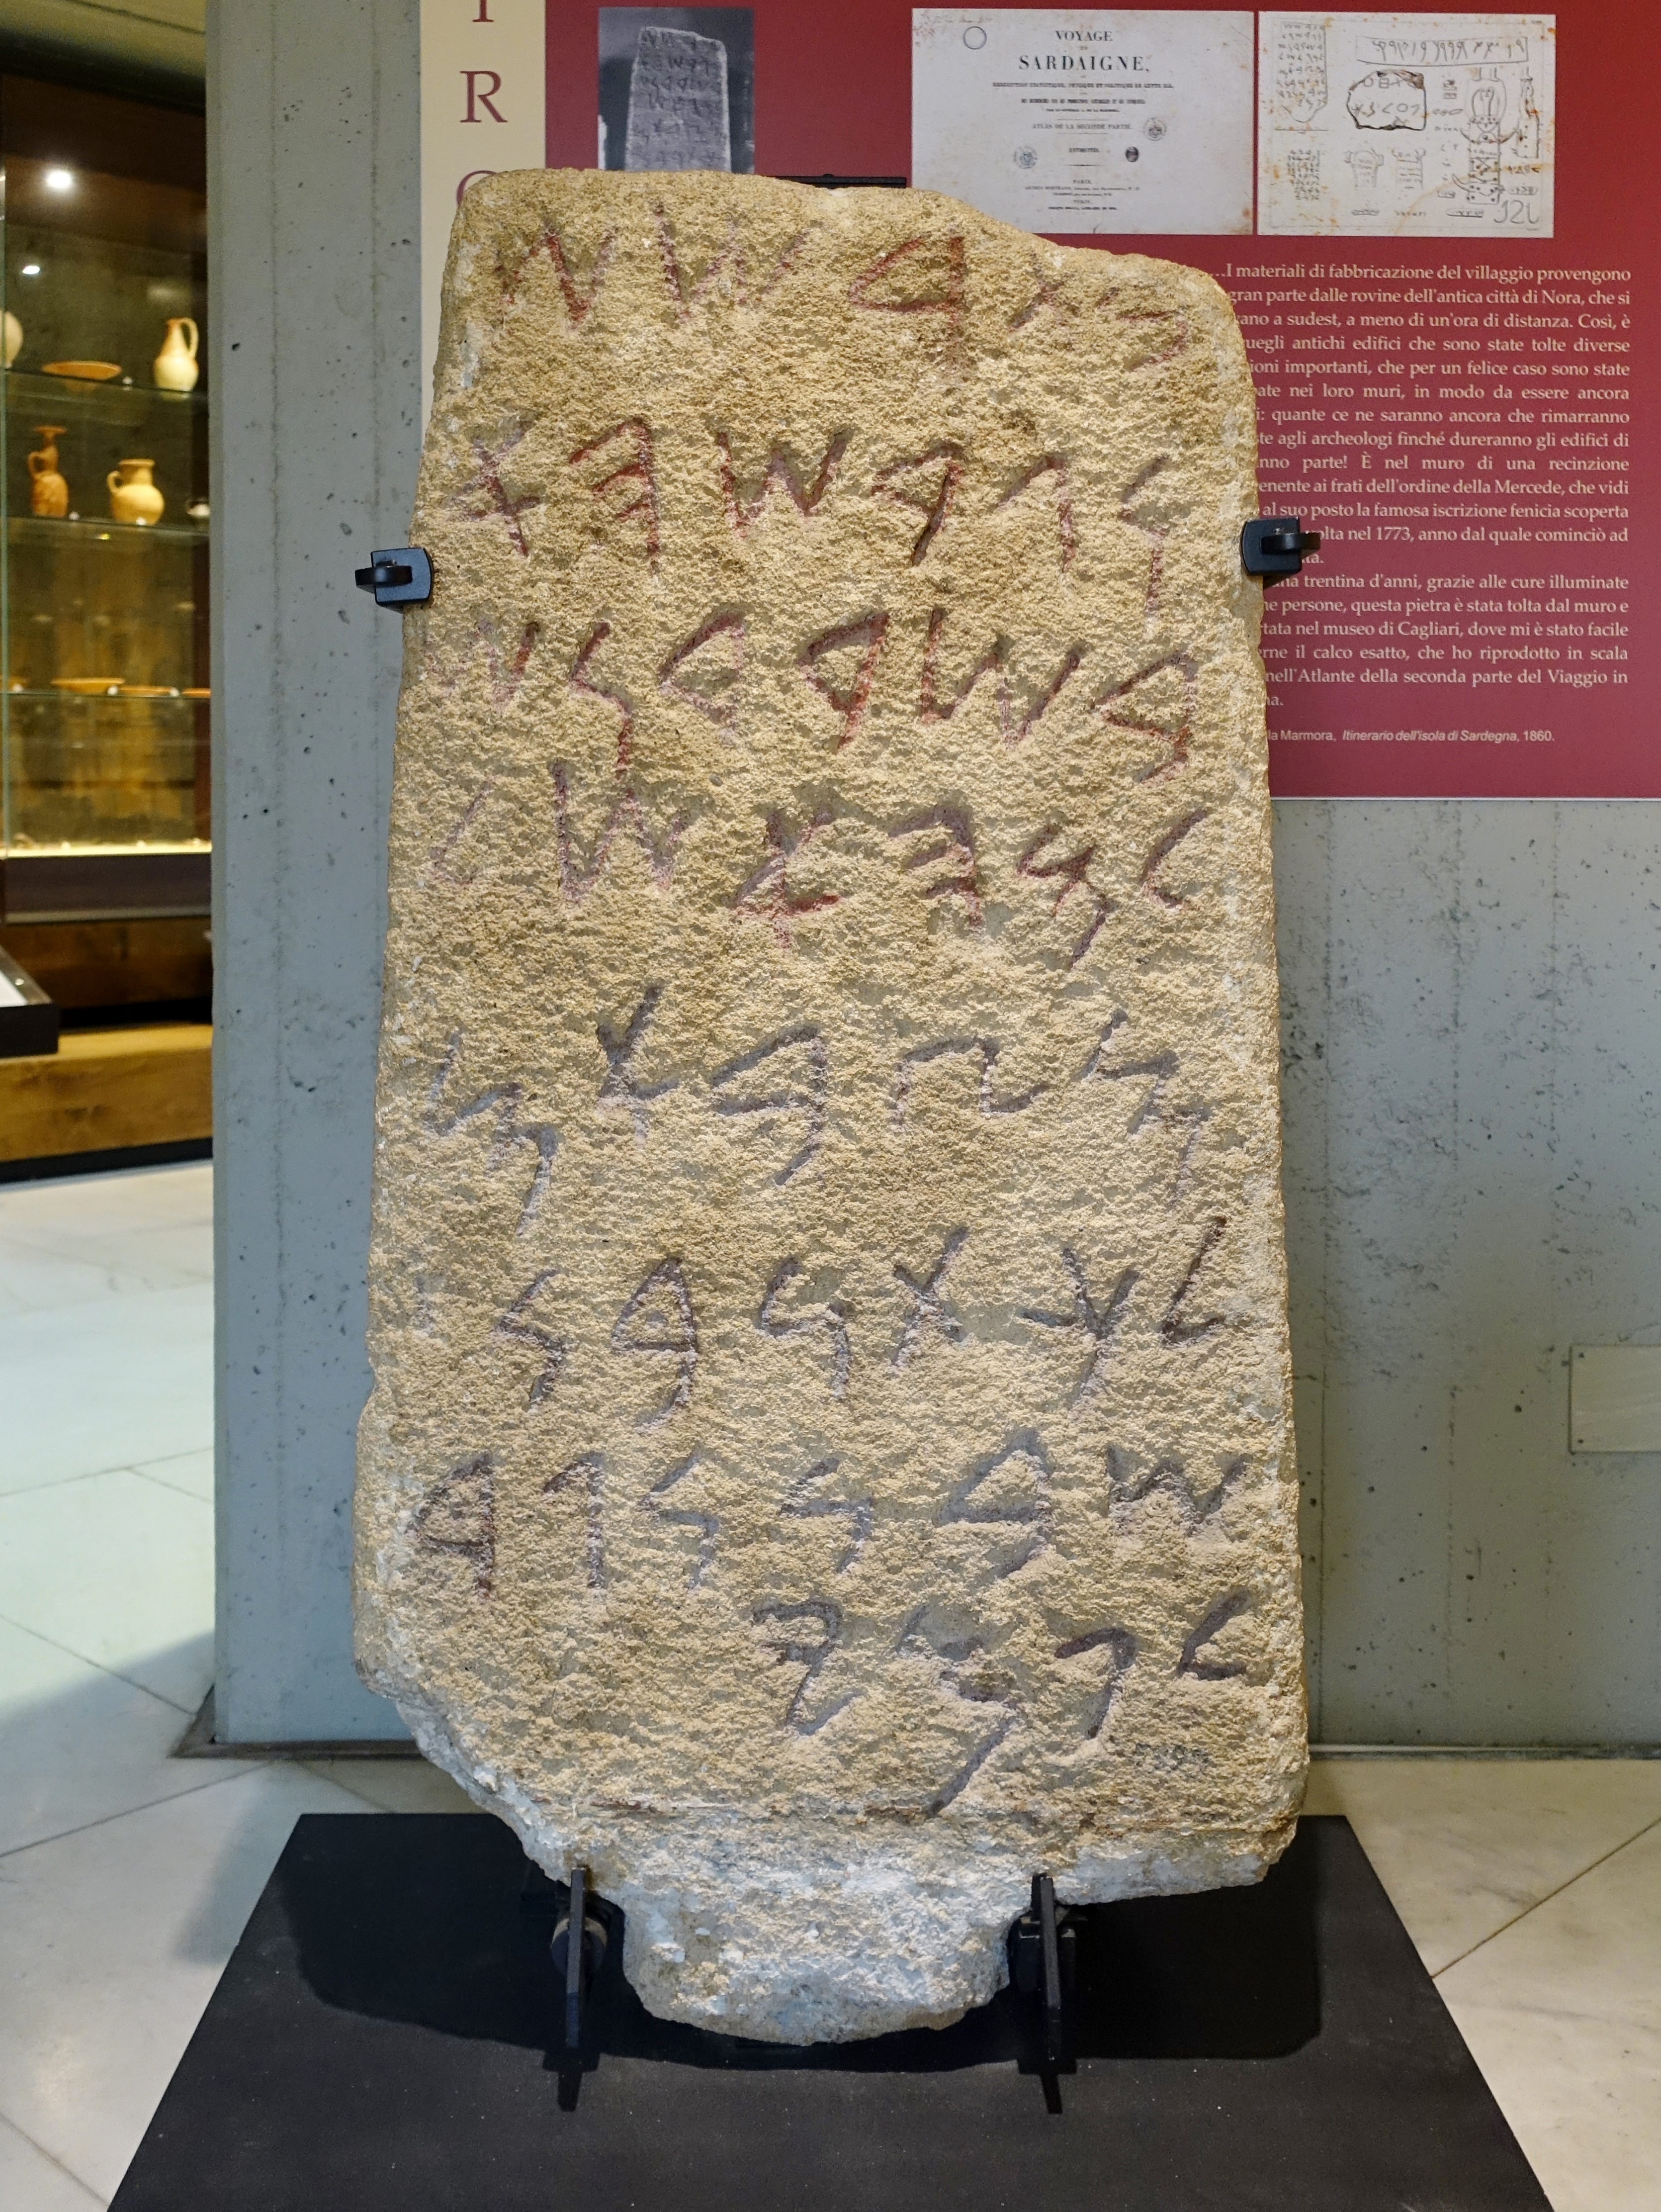 VOYAGE
SARDAIGNE,
ATLAS DE LA SECONDE PARTIE.
PARIS,
TURIN,
…I materiali di fabbricazione del villaggio provengono
gran parte dalle rovine dell'antica città di Nora, che si
a sudest, a meno di un'ora di distanza. Così, è
antichi edifici che sono state tolte diverse
importanti, che per un felice caso sono state
nei loro muri, in modo da essere ancora
quante ce ne saranno ancora che rimarranno
agli archeologi finché dureranno gli edifici di
parte! È nel muro di una recinzione
ai frati dell'ordine della Mercede, che vidi
al suo posto la famosa iscrizione fenicia scoperta
nel 1773, anno dal quale cominciò ad
trentina d'anni, grazie alle cure illuminate
persone, questa pietra è stata tolta dal muro e
nel museo di Cagliari, dove mi è stato facile
il calco esatto, che ho riprodotto in scala
nell'Atlante della seconda parte del Viaggio in
Marmora, Itinerario dell'isola di Sardegna, 1860.
𐤁𐤕𐤓𐤔𐤔
𐤅𐤂𐤓𐤔𐤄𐤀
𐤁𐤔𐤓𐤃𐤍𐤔
𐤋𐤌𐤄𐤀𐤔𐤋
𐤌𐤑𐤁𐤀𐤌
𐤋𐤊𐤕𐤍𐤁𐤍
𐤔𐤁𐤍𐤍𐤂𐤃
𐤋𐤐𐤌𐤉